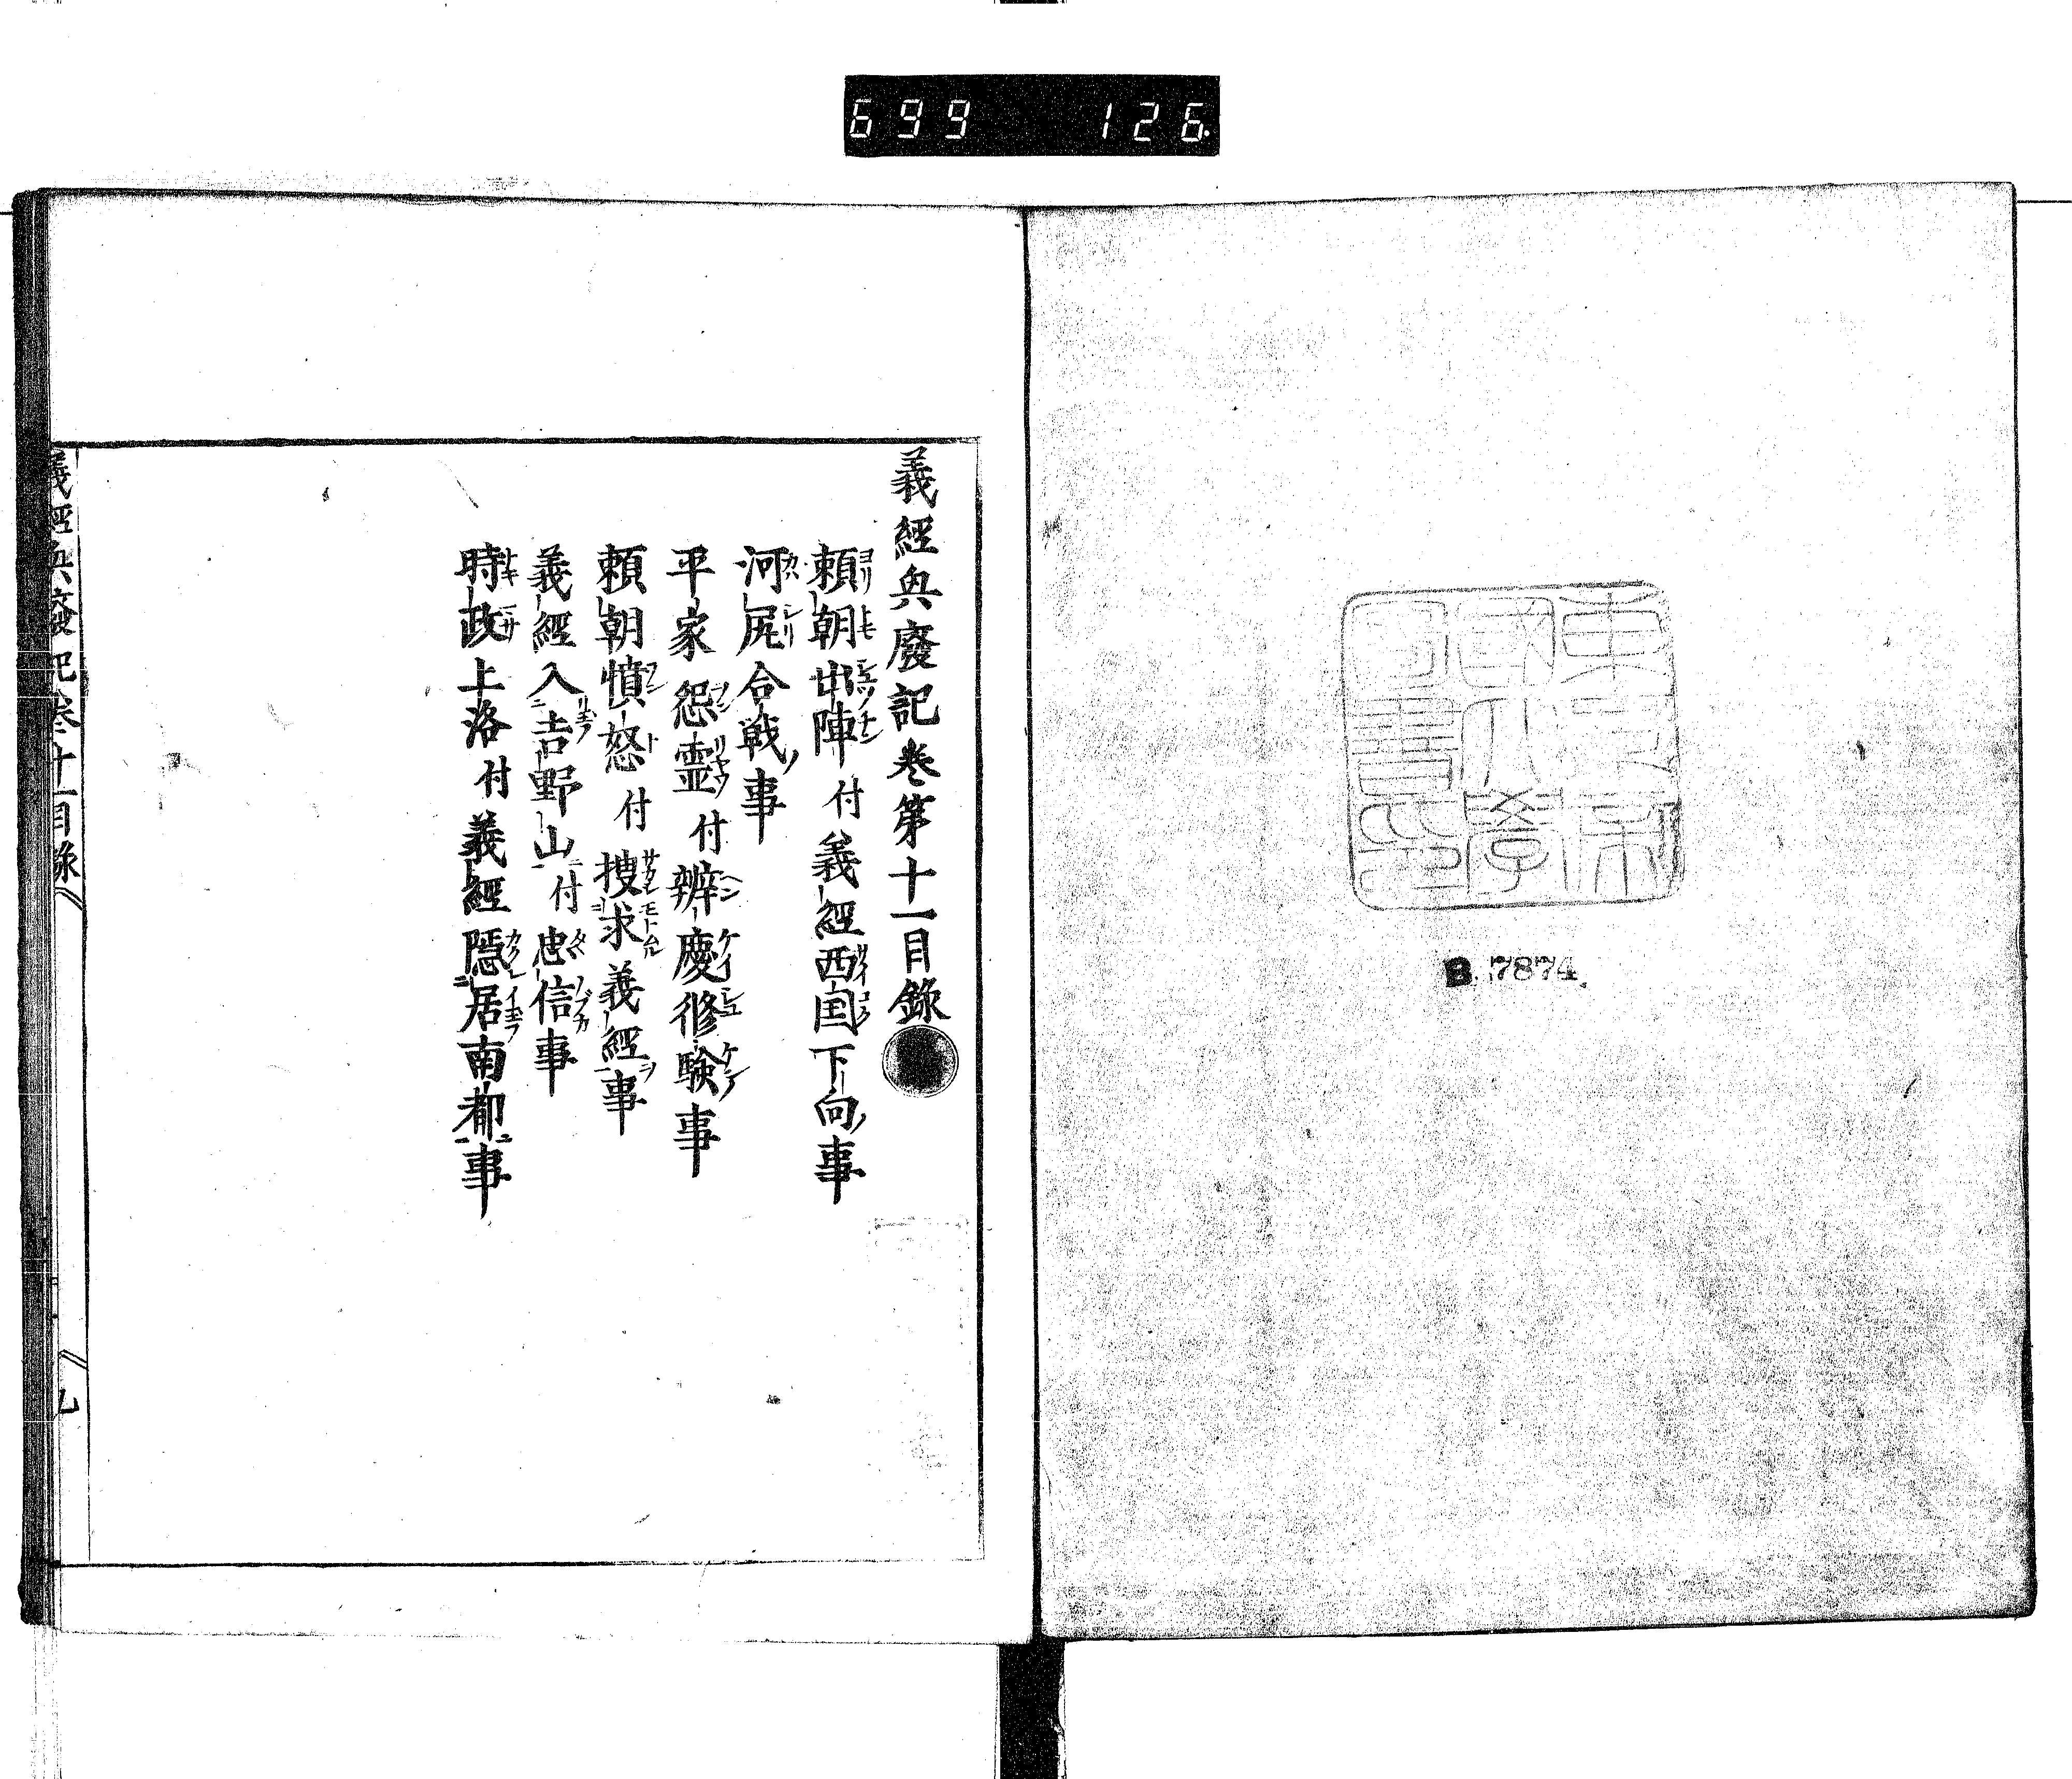 699 126
東京帝
國大學
圖書印
B 7874
義經興廢記卷第十一目錄
頼朝出陣付義經西国下向事
河尻合戦事
平家怨霊付辨慶修験事
頼朝憤怒付搜求義經事
義經入吉野山付忠信事
時政上洛付義經隠居南都事
義經興廢記卷十一目錄